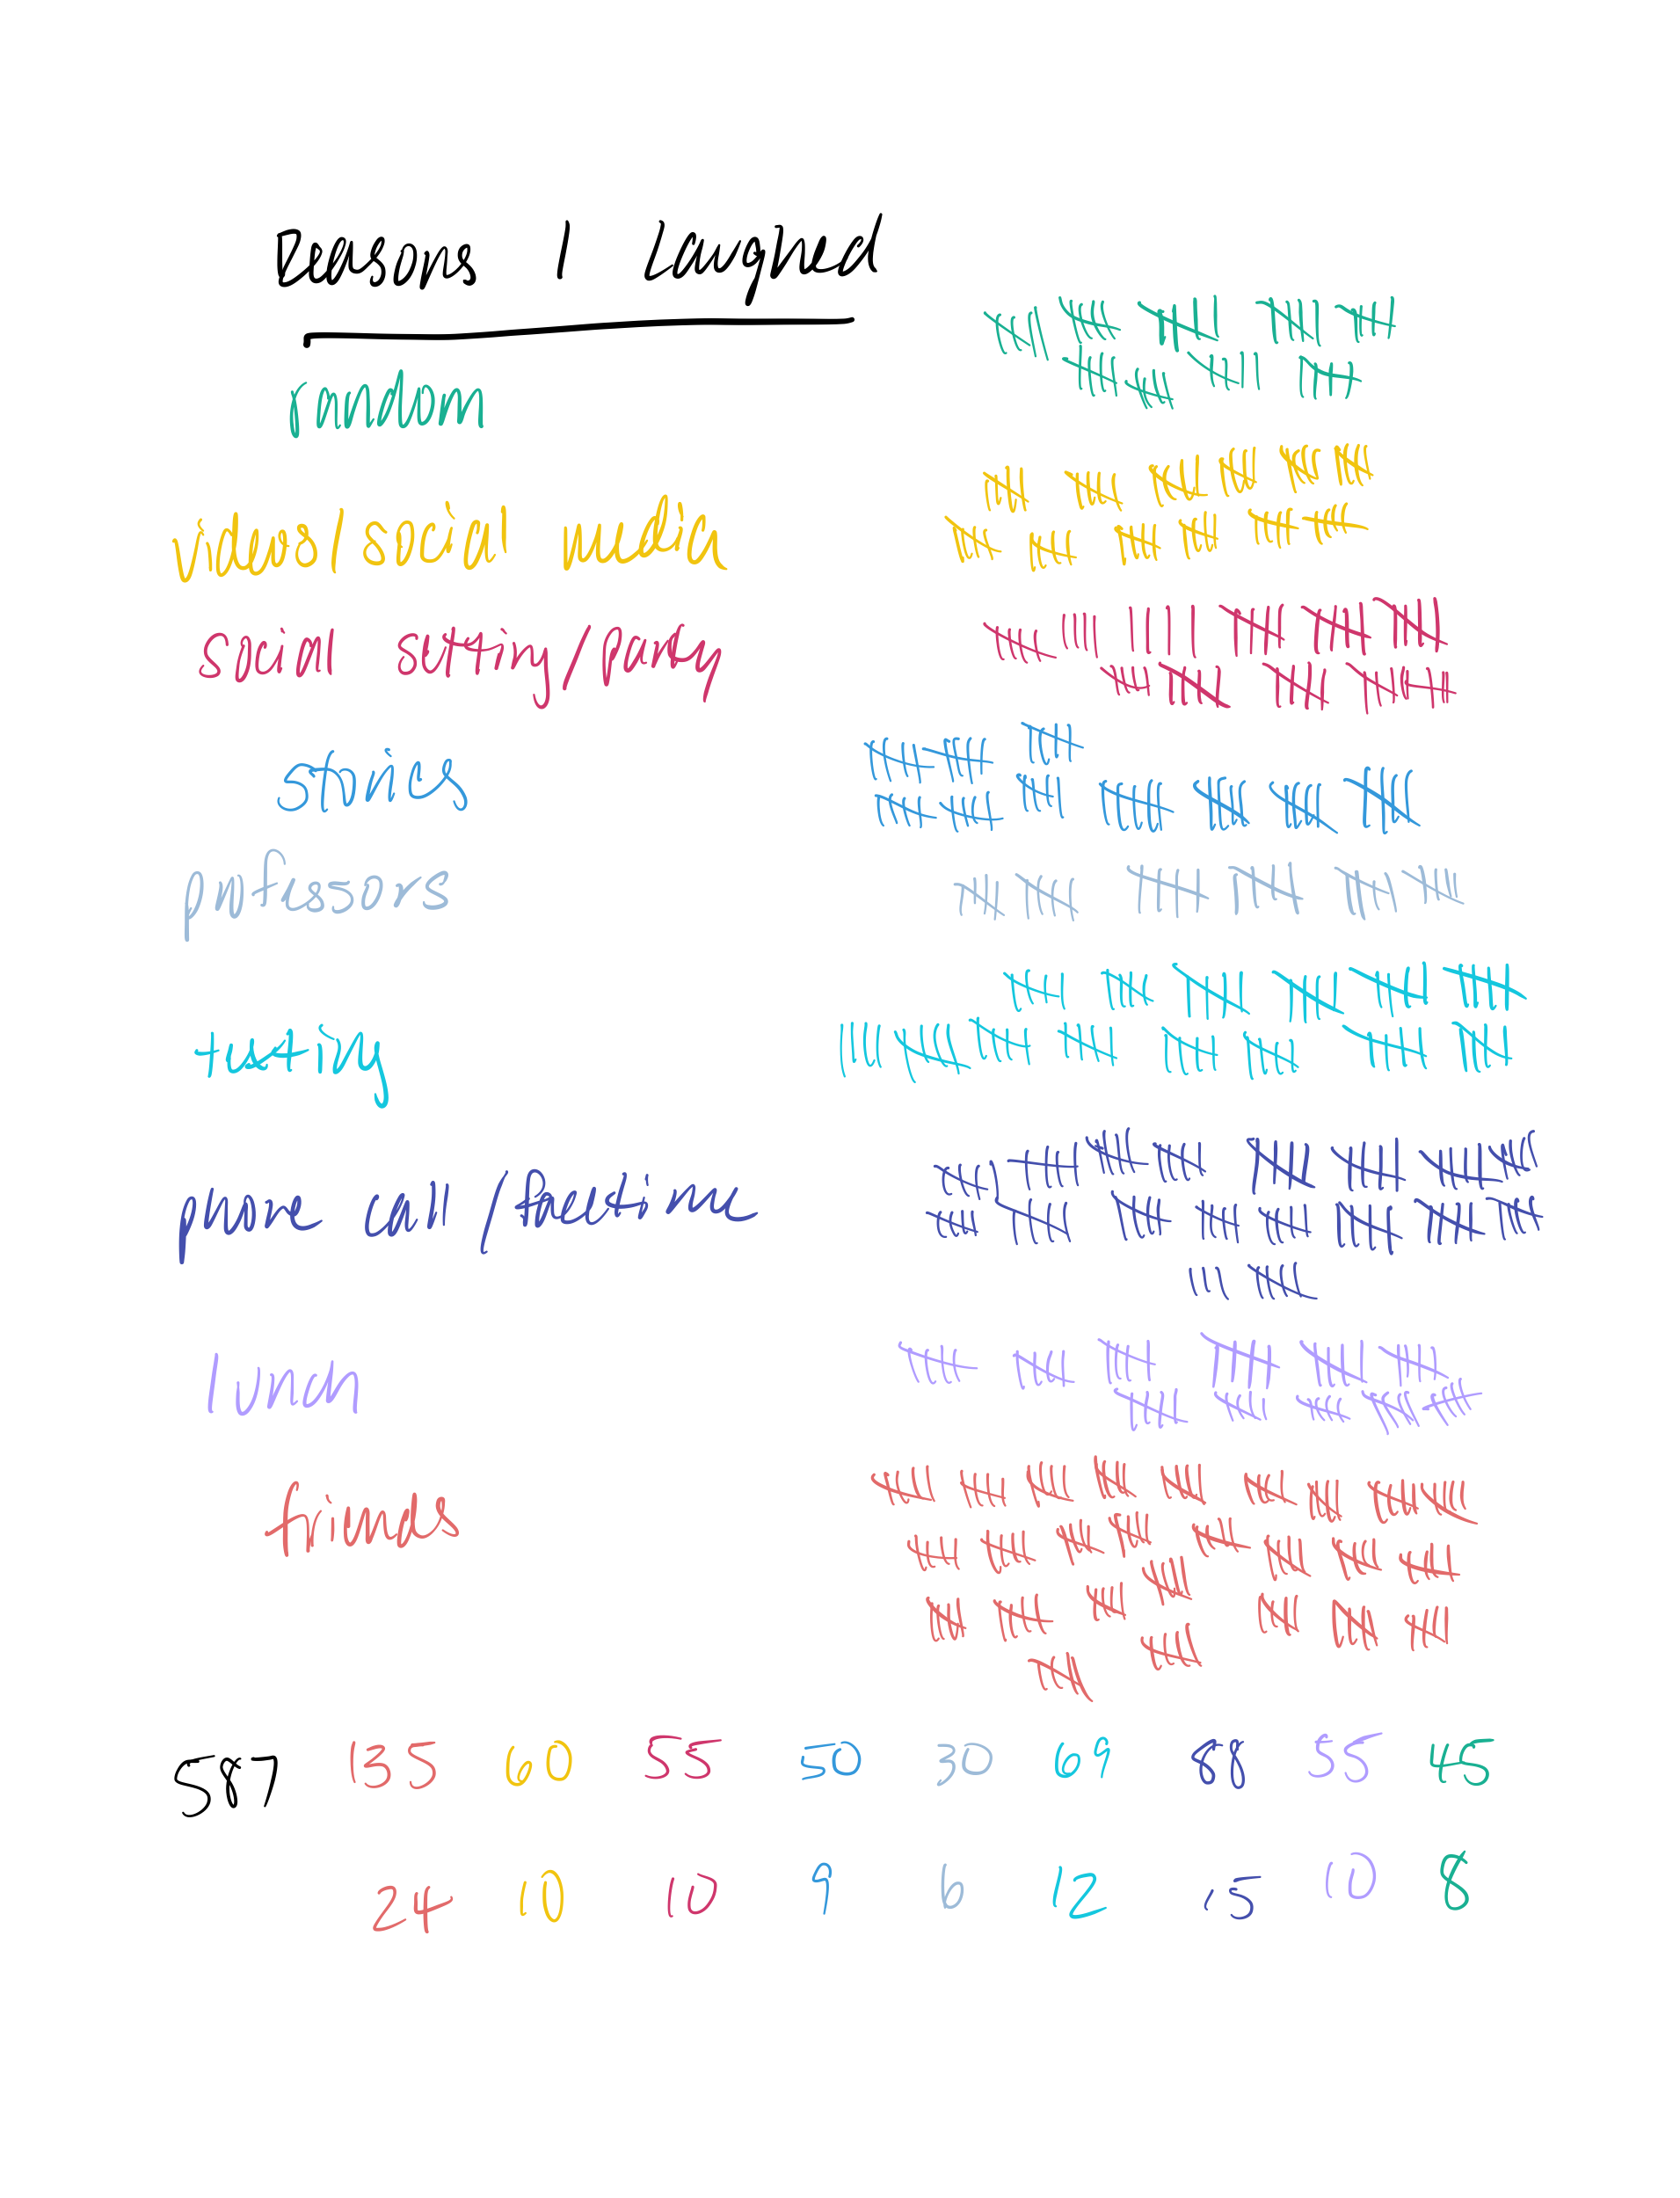 Reasons I Laughed
random
videos/social media
social setting/party
stories
professors
texting
phone call/facetime
lunch
friends
587 135 60 55 50 30 69 88 55 45
24 10 10 9 6 12 15 10 8